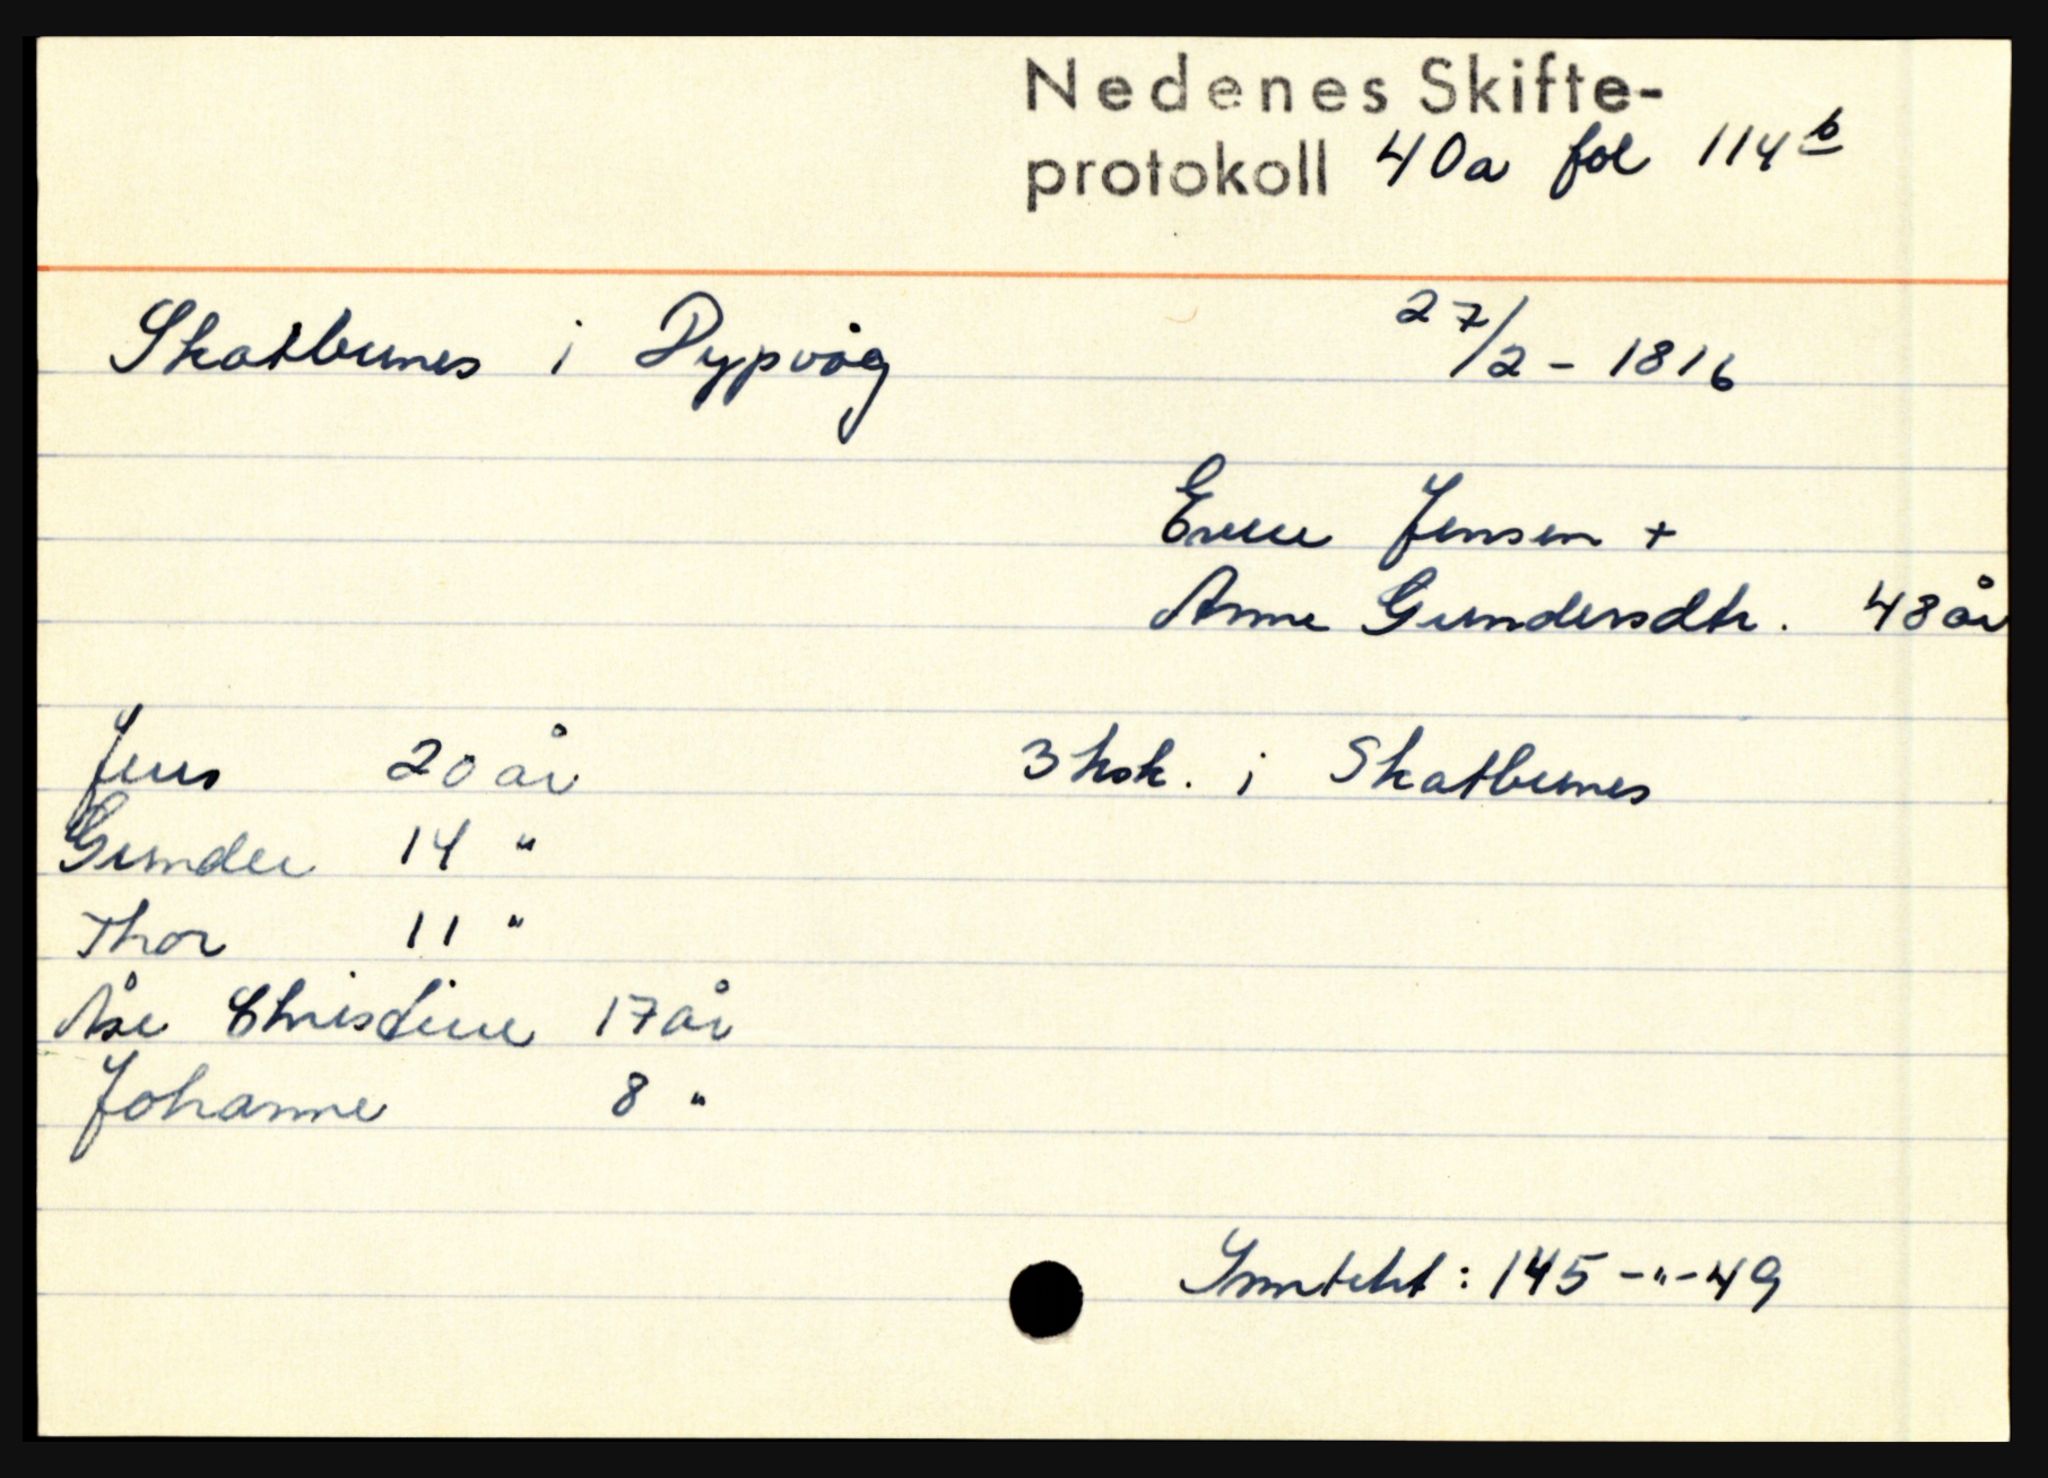 Nedenes Skifte-
protokoll 40a fol 114b
Skatbunes i Dypvåg 27/2 - 1816
Enu Jensen +
Anne Gundersdtr. 48 år
Jens 20 år 3 hsk. i Skatbunes
Gunder 14 "
Thor 11 "
Åse Christine 17 år
Johanne 8 "
Inntekt: 145 -"- 49